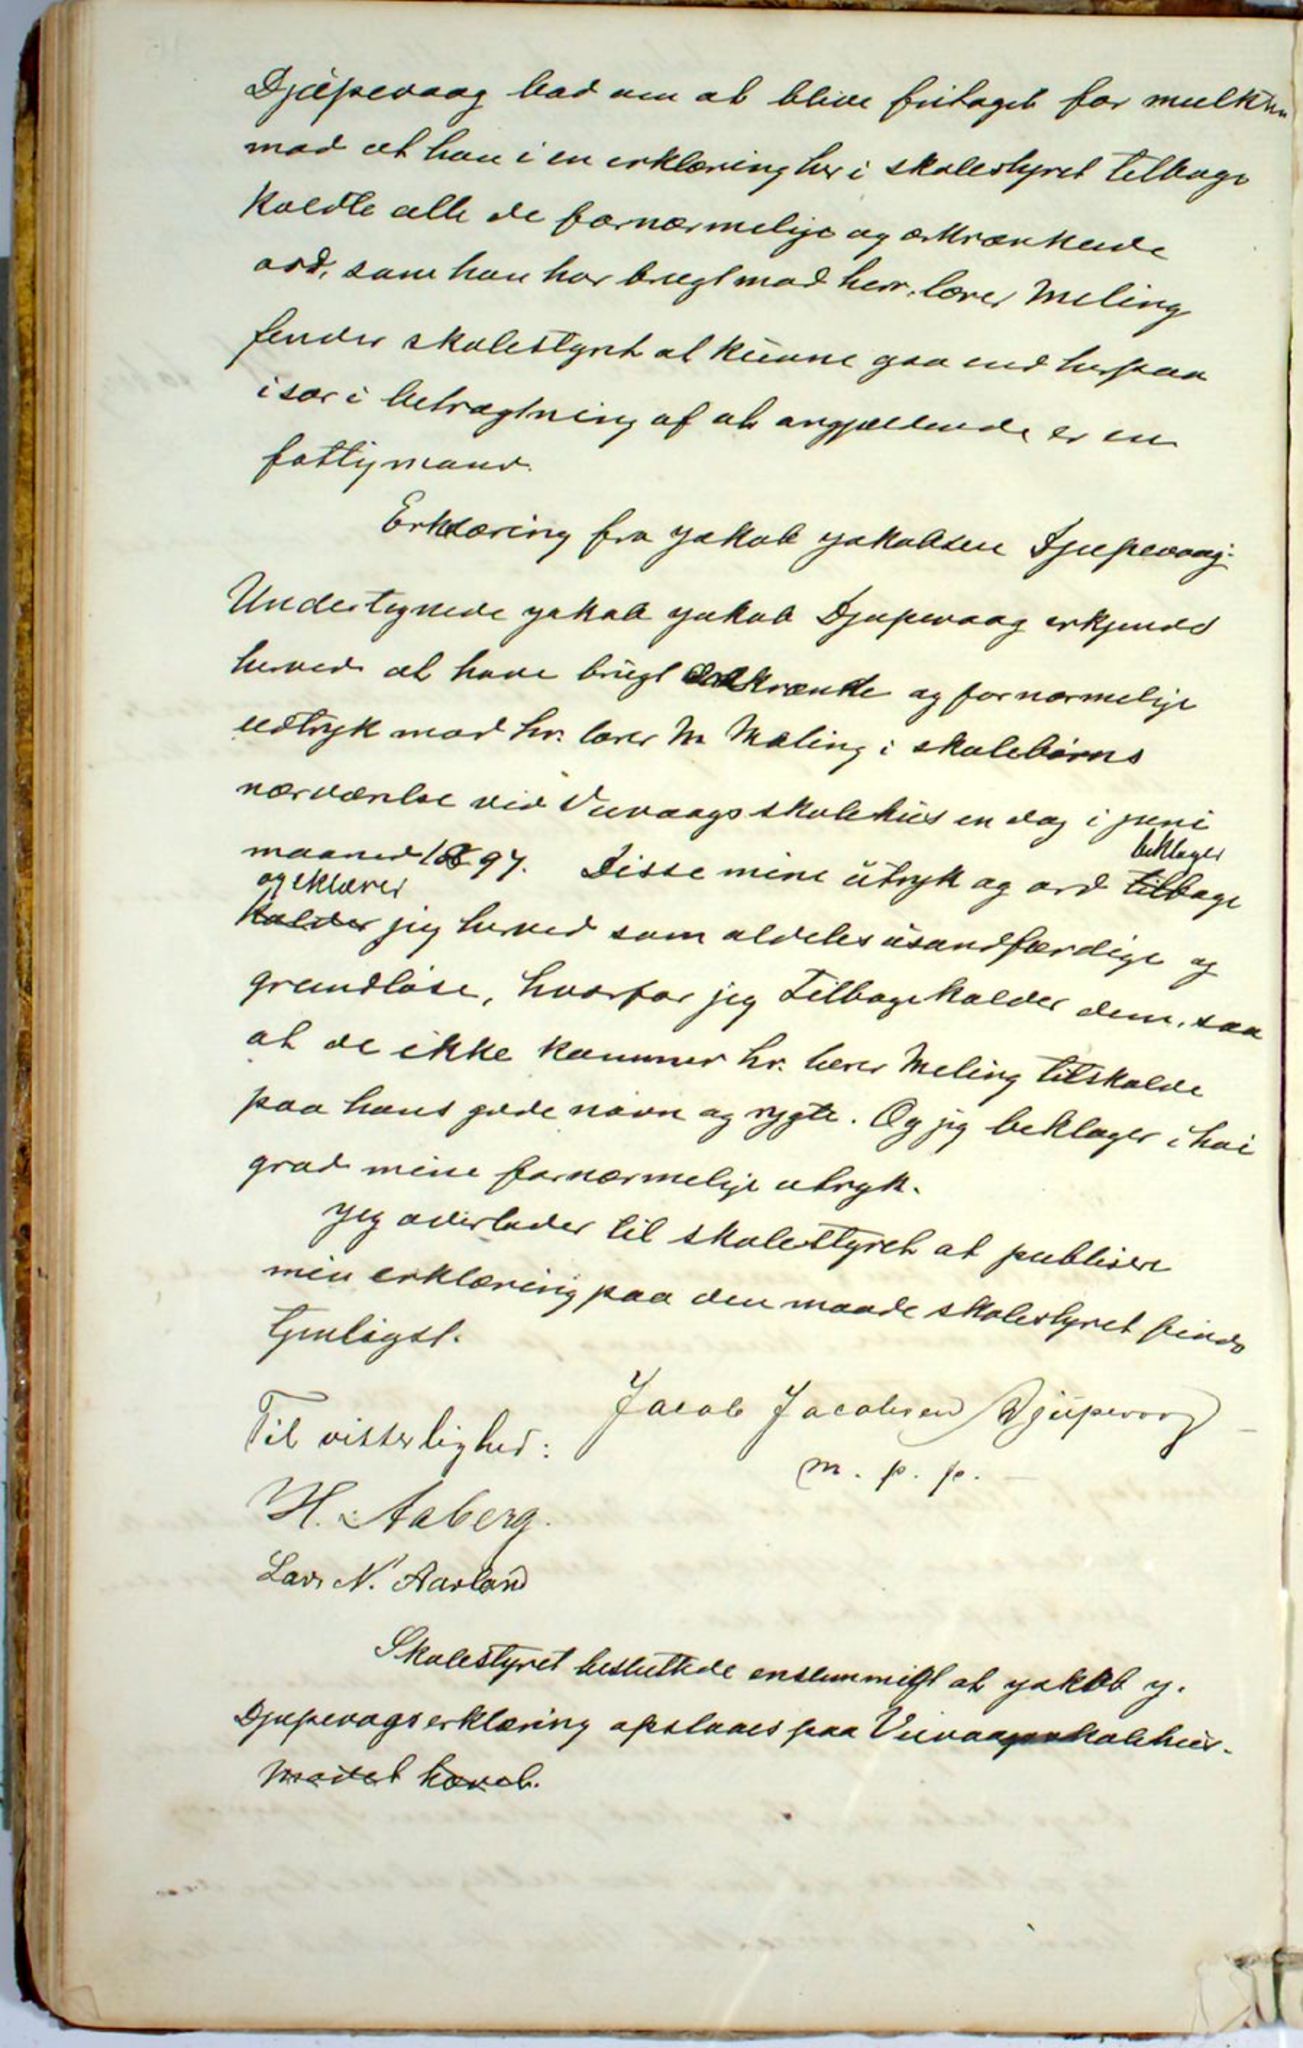 Djupevaag bad om at blive fritaget for mulkten
mod at han i en erklæring her i skolestyret tilbage
kaldte alle de fornærmelige og ærkrænkende
ord, som han har brugt mod herr. lærer Meling
finder skolestyret at kunne gaa ind herpaa
især i betragtning af at angjældende er en
fattigmand.
Erklæring fra Jakob Jakobsen Djupevaag.
Undertegnede Jakob Jakob Djupevaag erkjender
herved at have brugt ærekrænke og fornærmelige
udtryk mod hr. lærer M Meling i skolebørns
nærværelse ved Vuvaags skolehus en dag i juni
beklager
maaned 1897. Disse mine utryk og ord tilbage
og eklærer
kalder jeg herved som aldeles usandfærdige og
grundløse, hvorfor jeg tilbagekalder dem, saa
at de ikke kommer hr. lærer Meling tilskade
paa hans gode navn og rygte. Og jeg beklager i høi
grad mine fornærmelige utryk.
Jeg overlader til skolestyret at publisere
min erklæring paa den maade skolestyret finder
tjenligst.
Jacob Jacobsen Djupevaag
Til vitterlighed:
m. p. p.
H. Aaberg.
Lars N. Aarland
Skolestyret besluttede enstemmigt at Jakob J.
Djupevags erklæring opslaaes paa Vuvaagsskolehus.
Mødet hævet.